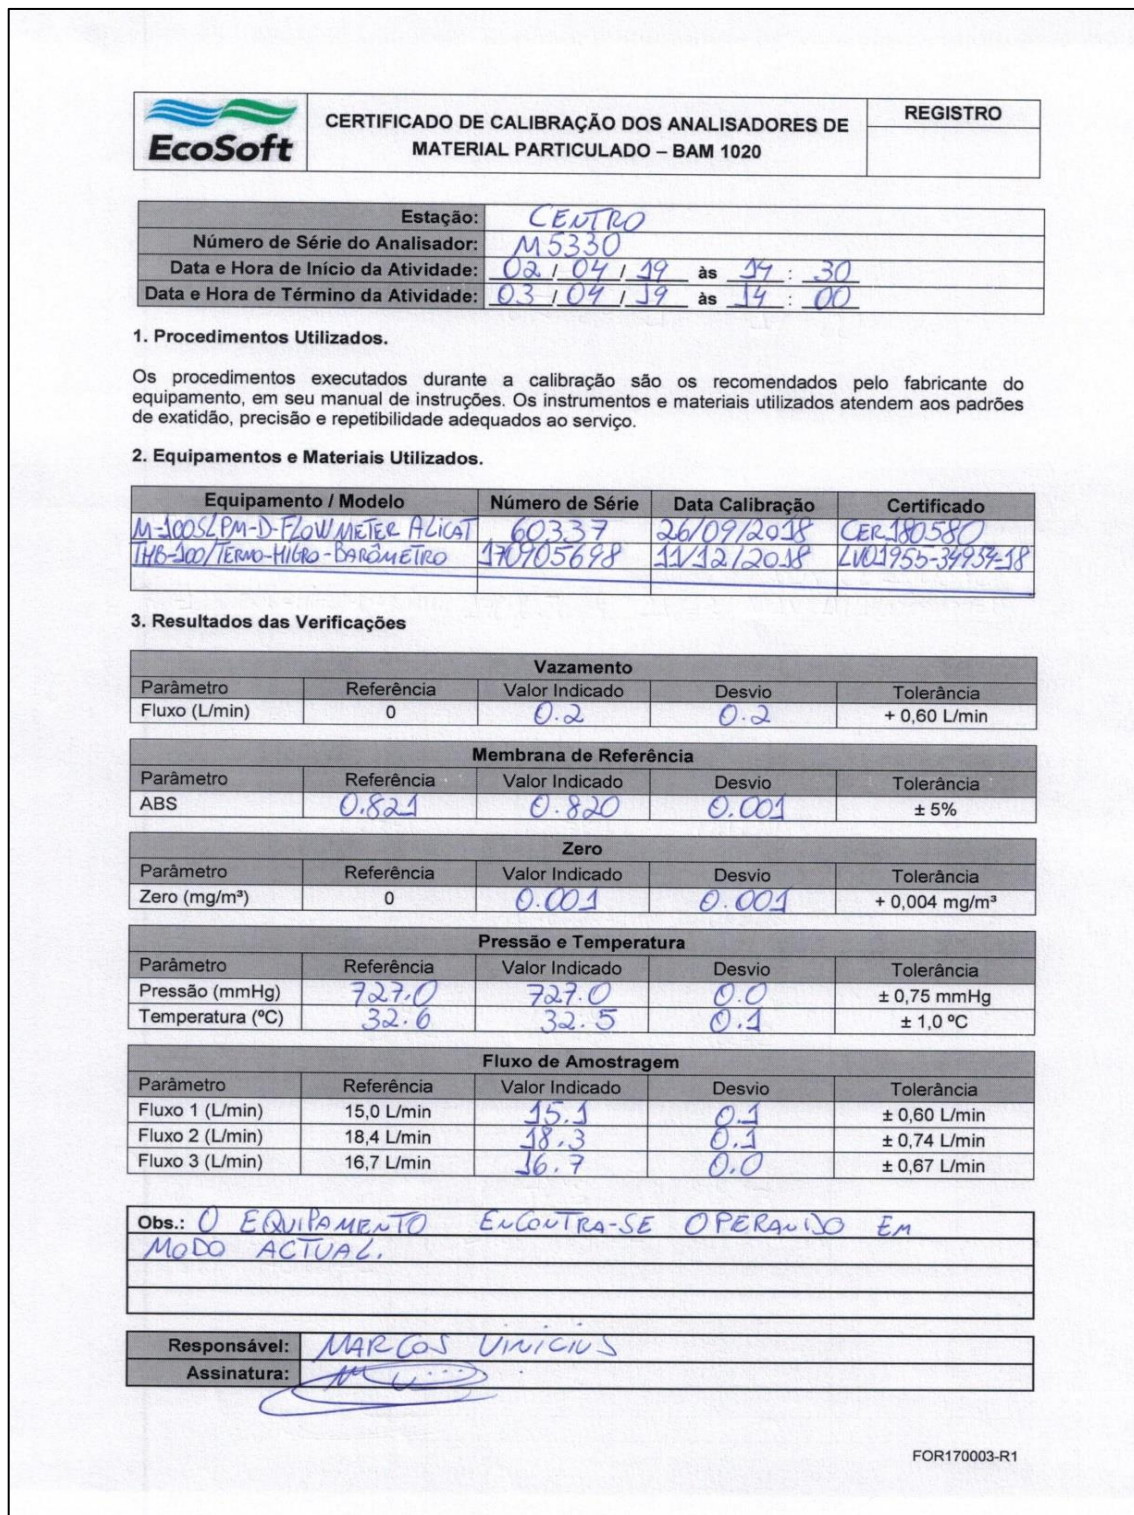 EcoSoft
CERTIFICADO DE CALIBRAÇÃO DOS ANALISADORES DE
MATERIAL PARTICULADO – BAM 1020
REGISTRO
Estação: CENTRO
Número de Série do Analisador: M5330
Data e Hora de Início da Atividade: 02 / 04 / 19 às 14 : 30
Data e Hora de Término da Atividade: 03 / 04 / 19 às 14 : 00
1. Procedimentos Utilizados.
Os procedimentos executados durante a calibração são os recomendados pelo fabricante do
equipamento, em seu manual de instruções. Os instrumentos e materiais utilizados atendem aos padrões
de exatidão, precisão e repetibilidade adequados ao serviço.
2. Equipamentos e Materiais Utilizados.
Equipamento / Modelo Número de Série Data Calibração Certificado
M-100SLPM-D-FLOWMETER ALICAT 60337 26/09/2018 CER180580
THB-100/TERMO-HIGRO-BARÔMETRO 170905698 11/12/2018
3. Resultados das Verificações
Vazamento
Parâmetro Referência Valor Indicado Desvio Tolerância
Fluxo (L/min) 0 0.2 0.2 + 0,60 L/min
Membrana de Referência
Parâmetro Referência Valor Indicado Desvio Tolerância
ABS 0.821 0.820 0.001 ± 5%
Zero
Parâmetro Referência Valor Indicado Desvio Tolerância
Zero (mg/m³) 0 0.001 0.001 + 0,004 mg/m³
Pressão e Temperatura
Parâmetro Referência Valor Indicado Desvio Tolerância
Pressão (mmHg) 727.0 727.0 0.0 ± 0,75 mmHg
Temperatura (ºC) 32.6 32.5 0.1 ± 1,0 ºC
Fluxo de Amostragem
Parâmetro Referência Valor Indicado Desvio Tolerância
Fluxo 1 (L/min) 15,0 L/min 15.1 0.1 ± 0,60 L/min
Fluxo 2 (L/min) 18,4 L/min 18.3 0.1 ± 0,74 L/min
Fluxo 3 (L/min) 16,7 L/min 16.7 0.0 ± 0,67 L/min
Obs.: O EQUIPAMENTO ENCONTRA-SE OPERANDO EM
MODO ACTUAL.
Responsável: MARCOS VINICIUS
Assinatura:
FOR170003-R1